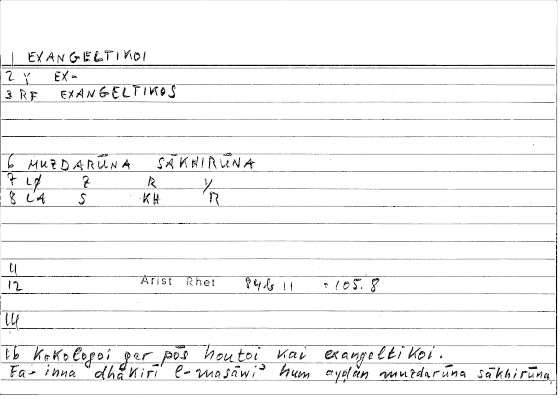 1 EXANGELTIKOI
2 Y EX-
3 RF EXANGELTIKOS
6 MUZDARŪNA SĀKHIRŪNA
7 LØ Z R Y
8 LA S KH R
11
12 Arist Rhet 84b 11 = 105.8
14
16 Kakologoi gar pōs houtoi kai exangeltikoi.
Fa- inna dhākirī l-masāwiʾ hum ayḍan muzdarūna sākhirūna